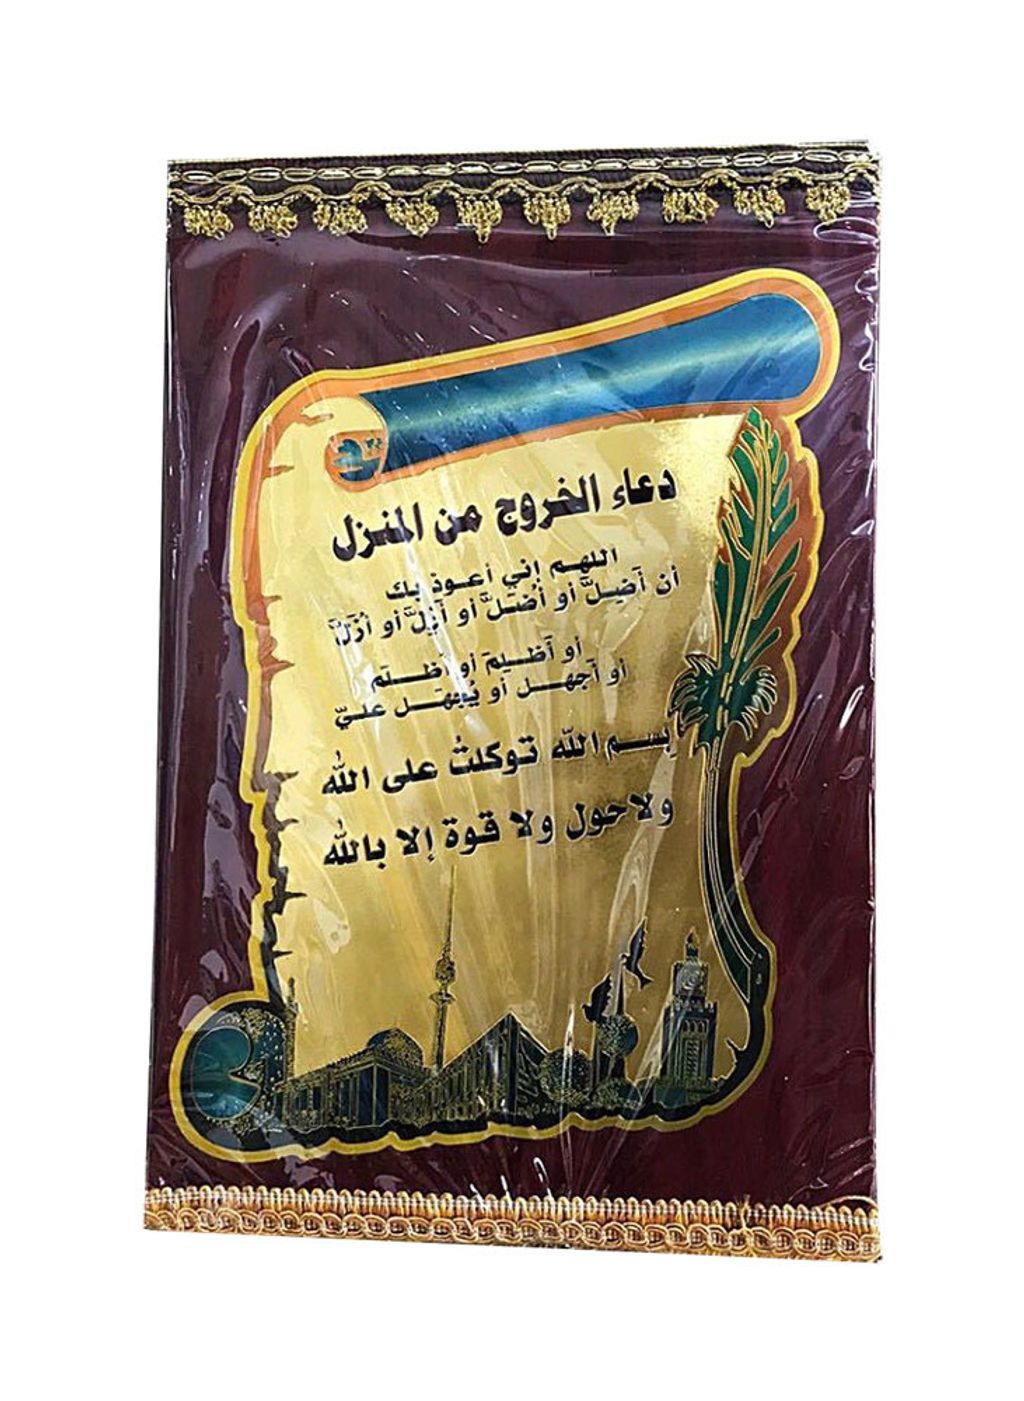 دعاء الخروج من المنزل
اللهم إني أعوذ بك
أن أَضِلَّ أو أُضَلَّ أو أَزِلَّ أو أُزَلَّ
أو أَظلِم أو أَظلَم
أو أَجهل أو يُجهَل عليّ
بِسم الله توكلتُ على الله
ولا حول ولا قوة إلا بالله